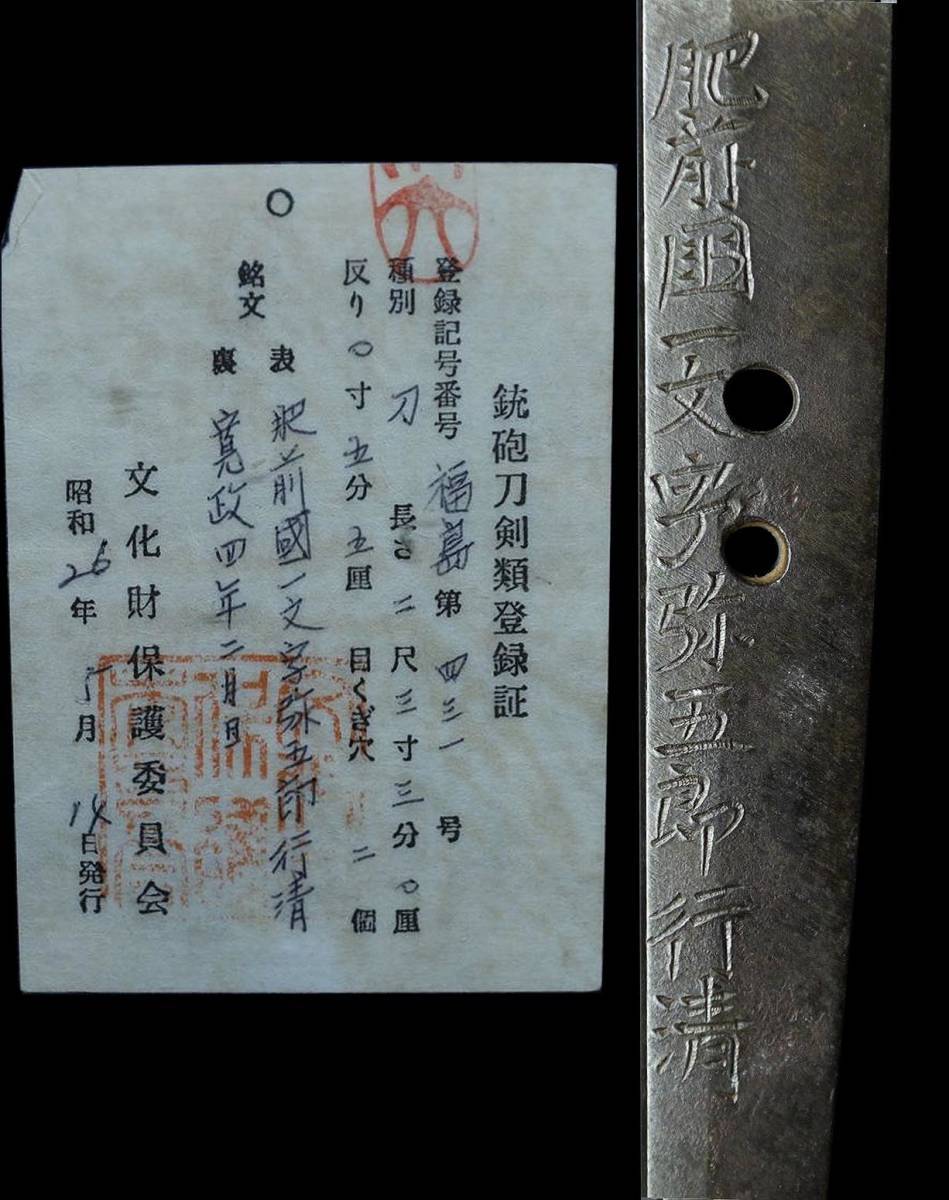 銃砲刀剣類登録証
登録記号番号 福島 第 四三一 号
種別 刀 長さ 二尺三寸三分〇厘
反り 〇寸五分五厘 目くぎ穴 二個
銘文 表 肥前國一文字弥五郎行清
裏 寛政四年二月日
文化財保護委員会
昭和26年5月14日発行
肥前国一文字弥五郎行清